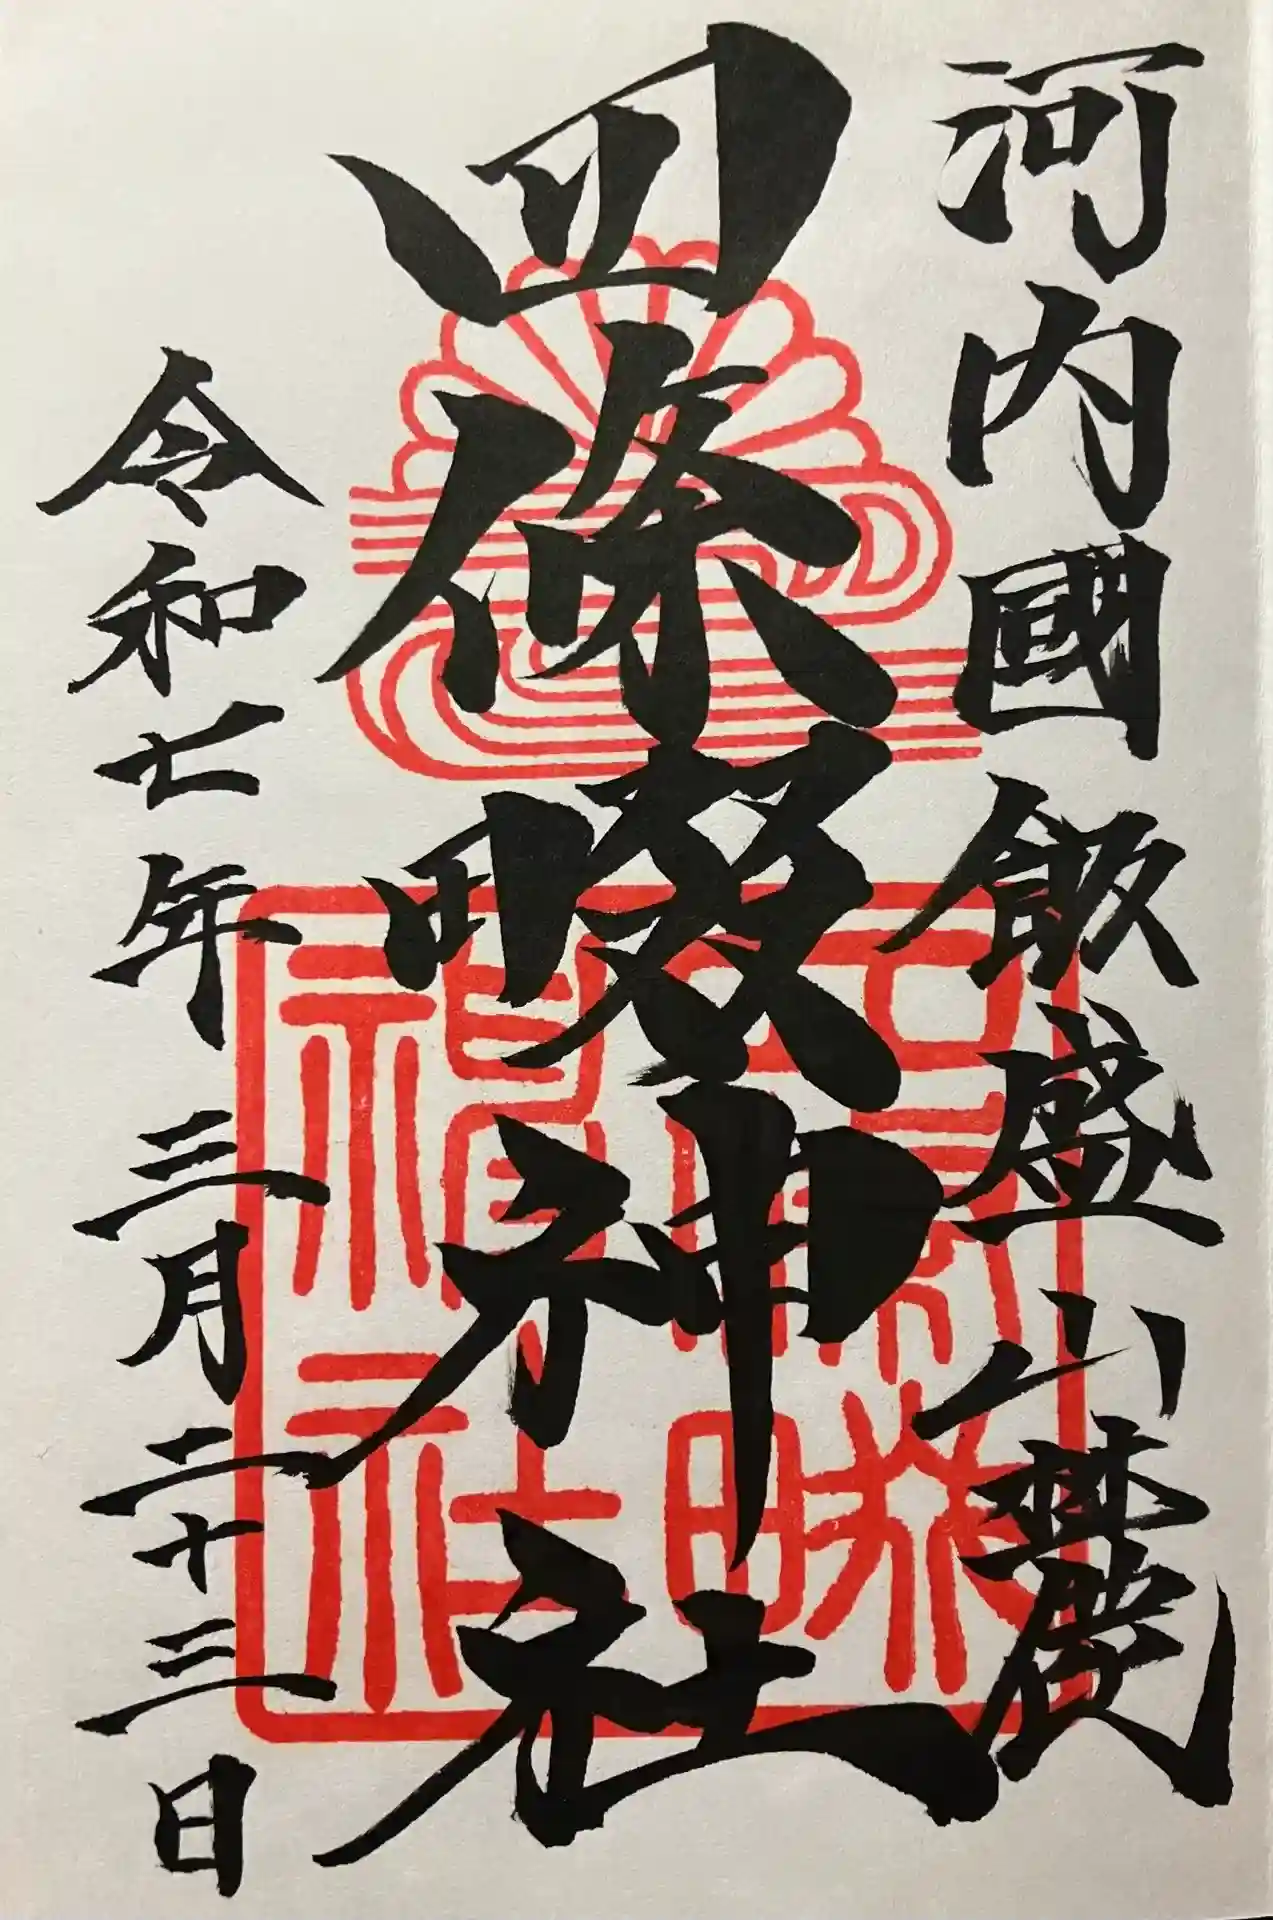 河内國飯盛山麓
四條畷神社
令和七年三月二十三日
四條畷
神社